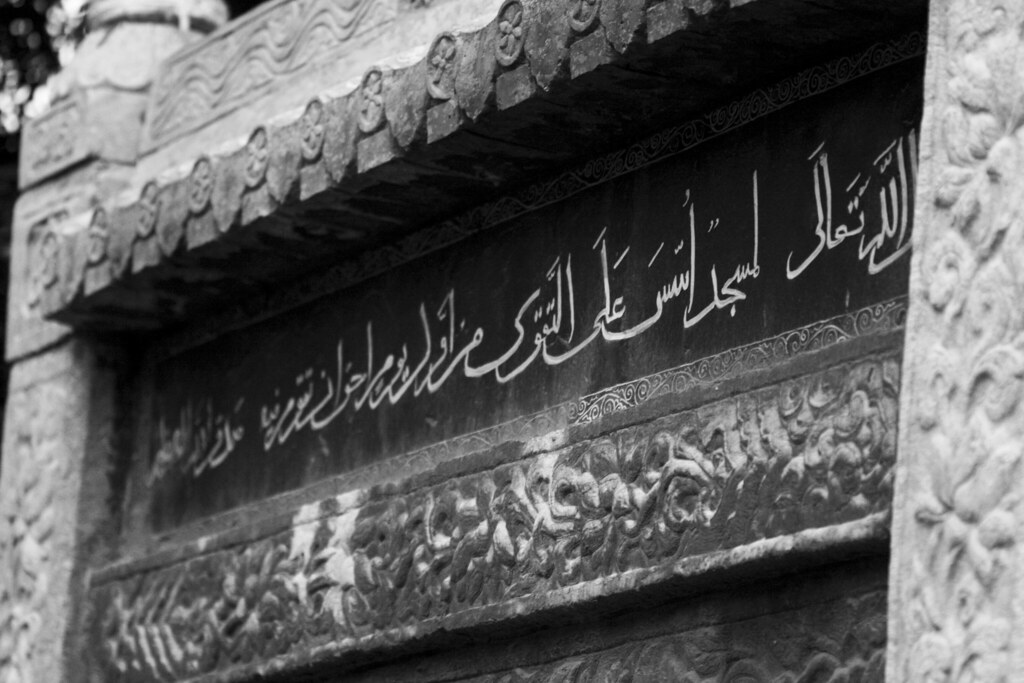 الله تعالى لمسجد أسس على التقوى من أول يوم أحق أن تقوم فيه